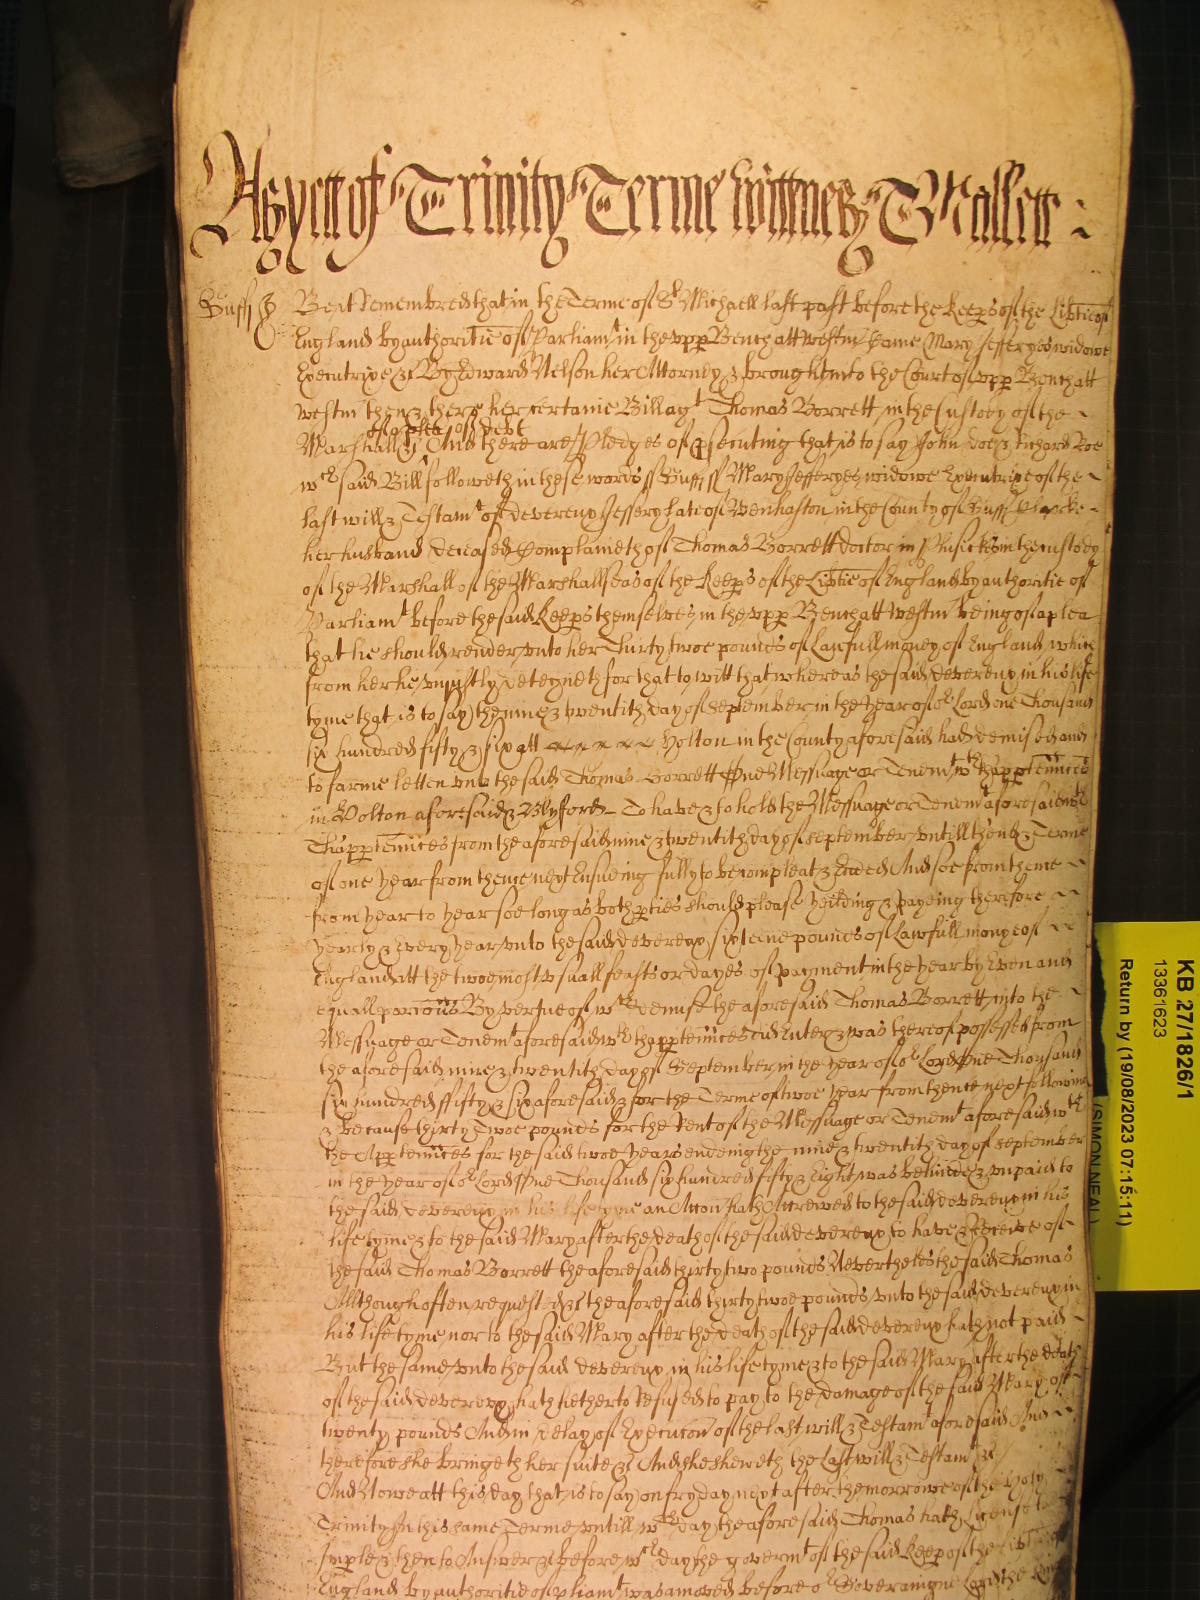 As yett of Trinity Terme wittnes T Mallett :
Suff ss Bee it Remembred that in the Terme of St Michaell last past before the Keeps of the Libtie of
England by authoritie of Parliamt in the upp Bench att Westm Came Mary Jefferyes widowe
Executrixe &c By Edward Nelson her Attorney & brought into the Court of upp Bench att
Westm then & there her certaine Bill agt Thomas Borrett in the Custody of the
of a plea of debt
Marshall &c And there are Pledges of psecuting that is to say John Doe & Richard Roe
wch said Bill followeth in these words ss Suff ss Mary Jefferyes widowe Executrixe of the
last will & Testamt of devereux Jeffery late of Wenhaston in the County of Suff Clarke
her husband deceased Complaineth of Thomas Borrett doctor in Phisicke in the custody
of the Marshall of the Marshallseas of the Keeps of the Libtie of England by authoritie of
Parliamt before the said Keeps themselves in the upp Bench att Westm being of a plea
that he should render unto her Thirty twoe pounds of Lawfull money of England which
from her he unjustly deteyneth for that to witt that whereas the said devereux in his life
tyme that is to say the nine & twentith day of September in the Year of or Lord one Thousand
six hundred fifty & six att Holton in the County aforesaid had demised and
to farme letten unto the said Thomas Borrett One Messuage or Tenemt wth thapptennces
in Holton aforesaid & Blyford To have & to hold the Messuage or Tenemt aforesaid wth
Thapptennces from the aforesaid nine & twentith day of September untill thend & Terme
of one Year from thence next Ensuing fully to be compleat & Ended And soe from thence
from Year to Year soe long as both pties should please Yeilding & payeing therefore
Yearly & Every Year unto the said devereux sixteene pounds of Lawfull monye of
England att the twoe most usuall feasts or dayes of payment in the Year by Even and
equall porcons By vertue of wch demise the aforesaid Thomas Borrett into the
Messuage or Tenemt aforesaid wth thapptennces did Enter & was thereof possessed from
the aforesaid nine & twentith day of September in the Year of or Lord One Thousand
six hundred fifty & six aforesaid & for the Terme of twoe Year from thence next following
& because thirty Twoe pounds for the Rent of the Messuage or Tenemt aforesaid wth
the Apptennces for the said twoe Years ending the nine & twentith day of September
in the Year of or Lord One Thousand six hundred fifty & Eight was behinde & unpaid to
the said devereux in his life tyme an Accon hath Accrewed to the said devereux in his
life tyme & to the said Mary after the death of the said devereux to have & Receive of
the said Thomas Borrett the aforesaid thirty two pounds Neverthelesse the said Thomas
Although often requested &c the aforesaid thirty twoe pounds unto the said devereux in
his life tyme nor to the said Mary after the death of the said devereux hath not paid
But the same unto the said devereux in his life tyme & to the said Mary after the death
of the said devereux hath hetherto Refused to pay to the damage of the said Mary of
twenty pounds And in delay of Execucon of the last will & Testamt aforesaid And
therefore she bringeth her suite &c And she sheweth the Last will & Testamt &c
And Nowe att this day that is to say on fryday next after the morrowe of the Holy
Trinity In this same Terme untill wch day the aforesaid Thomas hath License to
Imple & then to Answer &c before wch day the govermt of the said Keeps of the Libtie of
England by authoritie of pliamt was amoved before or Soveraigne Lord the King
KB 27/1826/1
13361623
(SIMON NEAL)
Return by (19/08/2023 07:15:11)